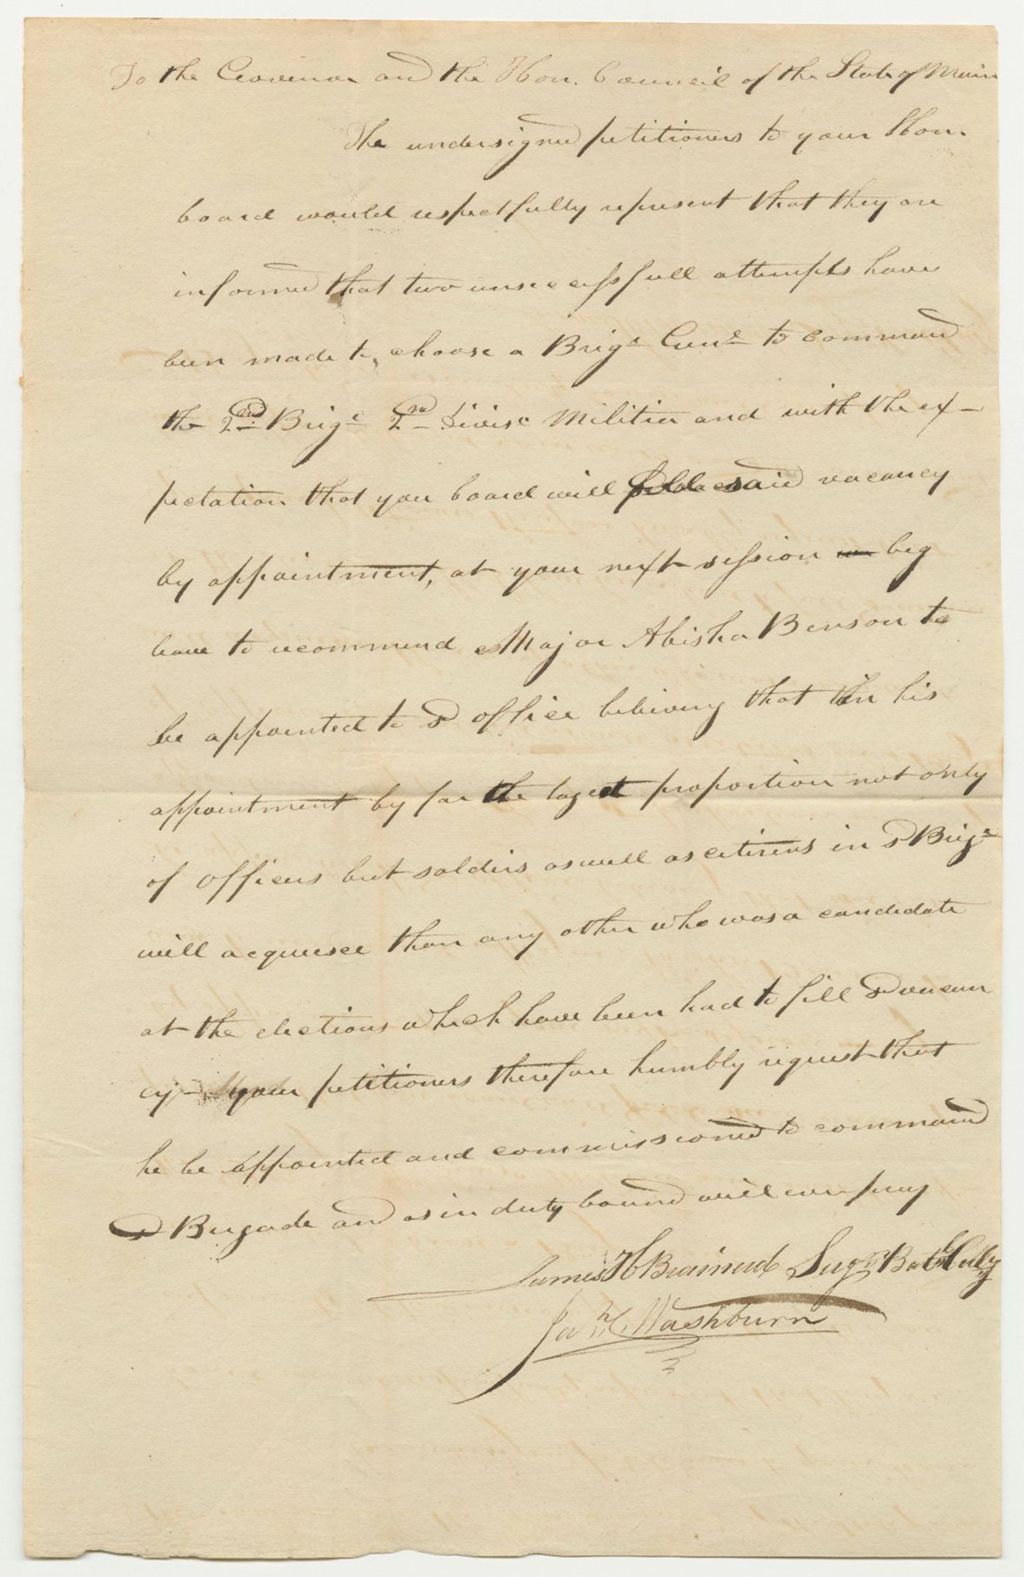 To the Govenor and the Hon. Council of the State of Main
The undersigned petitioners to your Hon.
board would respectfully represent that they are
informed that two unsuccessfull attempts have
been made to choose a Brigr Genl to command
the 2nd Brige 2nd Divisn Militia and with the ex-
pectation that your board will said vacancy
by appointment, at your next session beg
leave to recommend Major Abisha Benson to
be appointed to sd office believing that in his
appointment by far the lagest proportion not only
of officers but soldiers as well as citizens in sd Brige
will acquiesce than any other who was a candidate
at the elections which have been had to fill sd vacan
cy- your petitioners therefore humbly request that
he be appointed and commissioned to command
sd Brigade and as in duty bound will ever pray
James H Brainard Surgn
Washburn